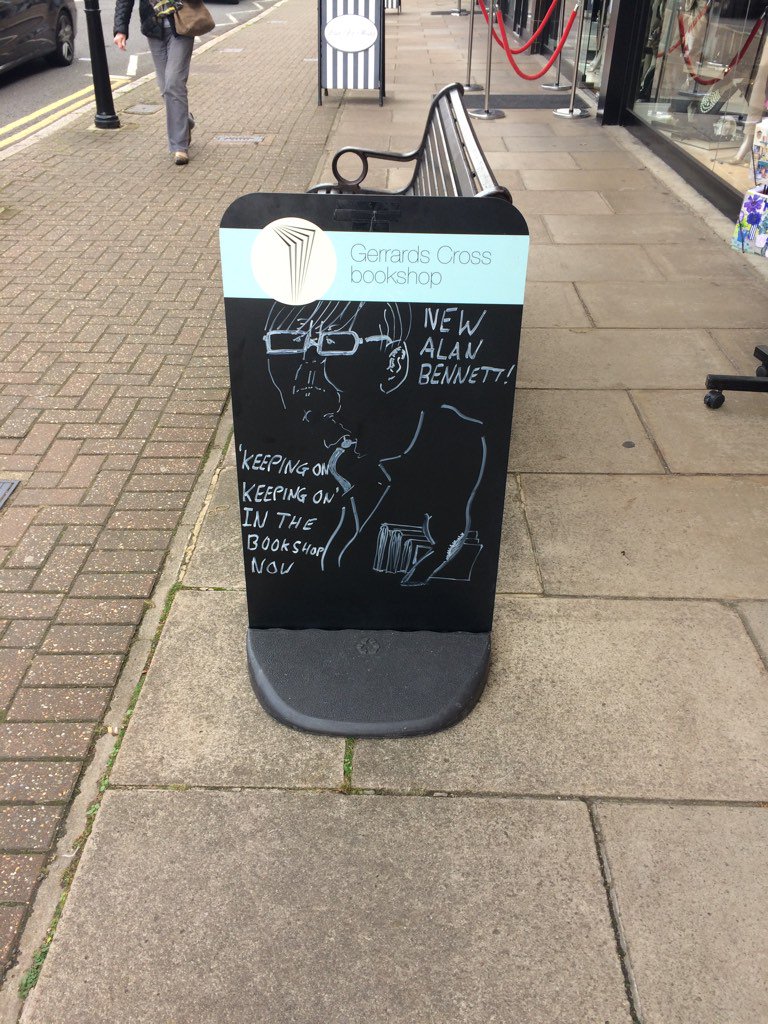 Gerrards Cross
bookshop
NEW
ALAN
BENNETT!
'KEEPING ON
KEEPING ON'
IN THE
BOOKSHOP
NOW